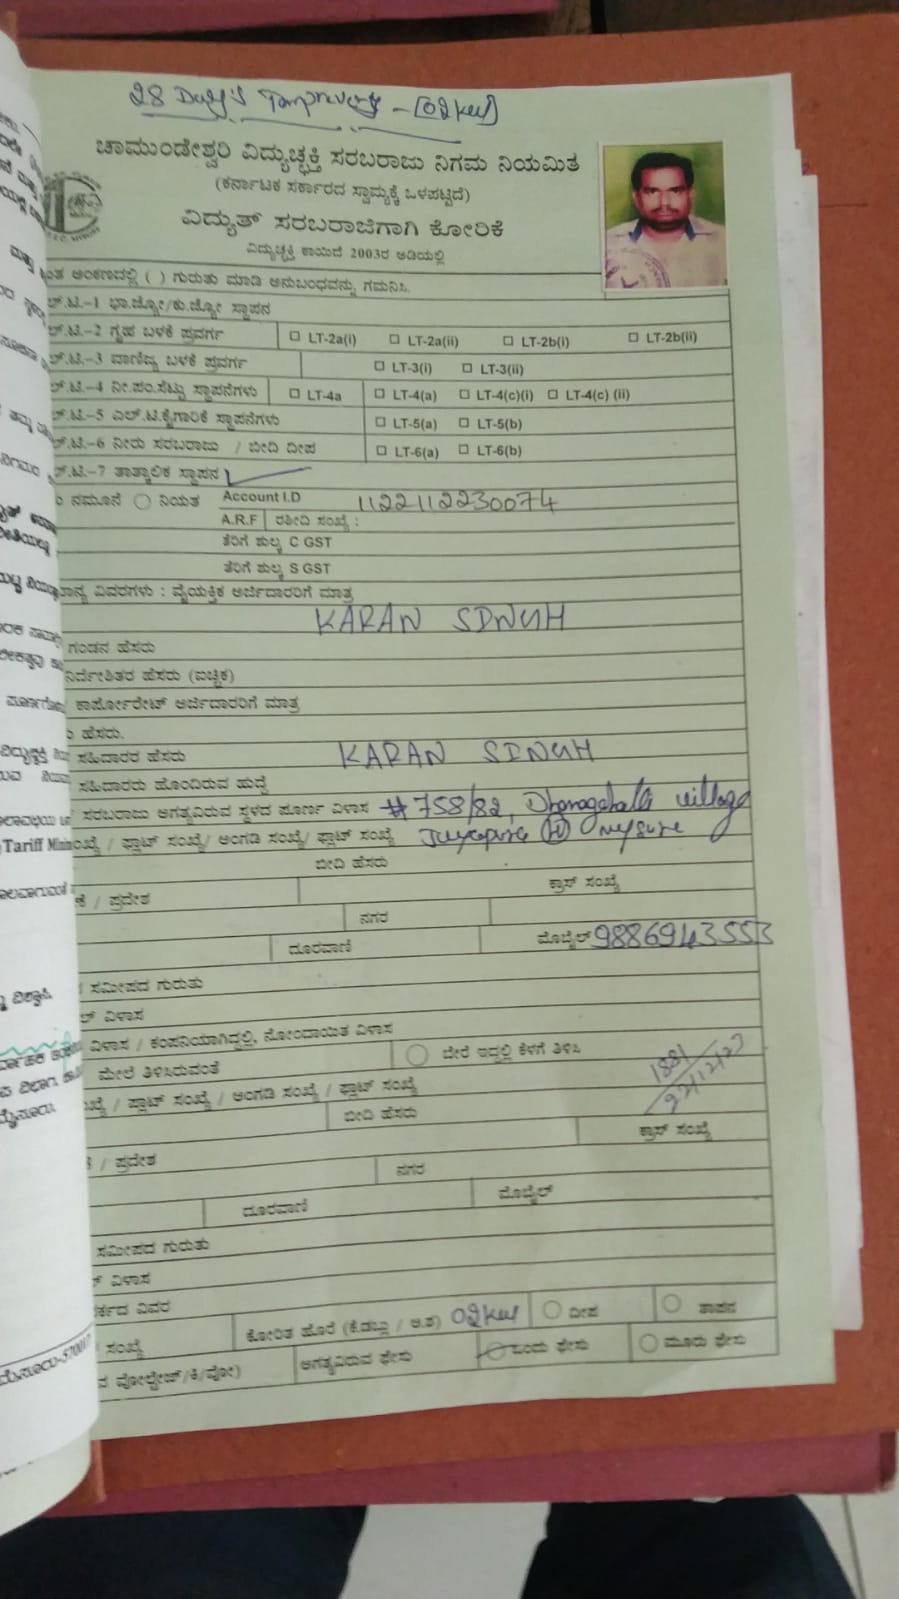 28 Day's Temprevery - [02kw]
ಚಾಮುಂಡೇಶ್ವರಿ ವಿದ್ಯುಚ್ಛಕ್ತಿ ಸರಬರಾಜು ನಿಗಮ ನಿಯಮಿತ
(ಕರ್ನಾಟಕ ಸರ್ಕಾರದ ಸ್ವಾಮ್ಯಕ್ಕೆ ಒಳಪಟ್ಟಿದೆ)
ವಿದ್ಯುತ್ ಸರಬರಾಜಿಗಾಗಿ ಕೋರಿಕೆ
ವಿದ್ಯುಚ್ಛಕ್ತಿ ಕಾಯಿದೆ 2003ರ ಅಡಿಯಲ್ಲಿ
ಅಂಕಣದಲ್ಲಿ ( ) ಗುರುತು ಮಾಡಿ ಅನುಬಂಧವನ್ನು ಗಮನಿಸಿ.
ಲ್.ಟಿ.-1 ಭಾ.ಜ್ಯೋ/ಕು.ಜ್ಯೋ ಸ್ಥಾಪನ
ಲ್.ಟಿ.-2 ಗೃಹ ಬಳಕೆ ಪ್ರವರ್ಗ LT-2a(i) LT-2a(ii) LT-2b(i) LT-2b(ii)
ಲ್.ಟಿ.-3 ವಾಣಿಜ್ಯ ಬಳಕೆ ಪ್ರವರ್ಗ LT-3(i) LT-3(ii)
ಲ್.ಟಿ.-4 ನೀ.ಪಂ.ಸೆಟ್ಟು ಸ್ಥಾಪನೆಗಳು LT-4a LT-4(a) LT-4(c)(i) LT-4(c) (ii)
ಲ್.ಟಿ.-5 ಎಲ್.ಟಿ.ಕೈಗಾರಿಕೆ ಸ್ಥಾಪನೆಗಳು LT-5(a) LT-5(b)
ಲ್.ಟಿ.-6 ನೀರು ಸರಬರಾಜು / ಬೀದಿ ದೀಪ LT-6(a) LT-6(b)
ಲ್.ಟಿ.-7 ತಾತ್ಕಾಲಿಕ ಸ್ಥಾಪನ
ನಮೂನೆ ನಿಯತ Account I.D 1122112230074
A.R.F ರಶೀದಿ ಸಂಖ್ಯೆ :
ತೆರಿಗೆ ಶುಲ್ಕ C GST
ತೆರಿಗೆ ಶುಲ್ಕ S GST
ವಿವರಗಳು : ವೈಯಕ್ತಿಕ ಅರ್ಜಿದಾರರಿಗೆ ಮಾತ್ರ
KARAN SINGH
ಗಂಡನ ಹೆಸರು
ನಿರ್ದೇಶಿತರ ಹೆಸರು (ಐಚ್ಛಿಕ)
ಕಾರ್ಪೋರೇಟ್ ಅರ್ಜಿದಾರರಿಗೆ ಮಾತ್ರ
ಹೆಸರು.
ಸಹಿದಾರರ ಹೆಸರು KARAN SINGH
ಸಹಿದಾರರು ಹೊಂದಿರುವ ಹುದ್ದೆ
ಸರಬರಾಜು ಅಗತ್ಯವಿರುವ ಸ್ಥಳದ ಪೂರ್ಣ ವಿಳಾಸ #758/82, Dhanagahalli village
Tariff ಸಂಖ್ಯೆ / ಫ್ಲಾಟ್ ಸಂಖ್ಯೆ/ ಅಂಗಡಿ ಸಂಖ್ಯೆ/ ಪ್ಲಾಟ್ ಸಂಖ್ಯೆ Jayapura (H) mysure
ಬೀದಿ ಹೆಸರು
/ ಪ್ರದೇಶ ಕ್ರಾಸ್ ಸಂಖ್ಯೆ
ನಗರ
ದೂರವಾಣಿ ಮೊಬೈಲ್ 9886943553
ಸಮೀಪದ ಗುರುತು
ವಿಳಾಸ
ವಿಳಾಸ / ಕಂಪನಿಯಾಗಿದ್ದಲ್ಲಿ, ನೋಂದಾಯಿತ ವಿಳಾಸ
ಮೇಲೆ ತಿಳಿಸಿರುವಂತೆ ಬೇರೆ ಇದ್ದಲ್ಲಿ ಕೆಳಗೆ ತಿಳಿಸಿ
1881
22/12/23
/ ಫ್ಲಾಟ್ ಸಂಖ್ಯೆ / ಅಂಗಡಿ ಸಂಖ್ಯೆ / ಪ್ಲಾಟ್ ಸಂಖ್ಯೆ
ಬೀದಿ ಹೆಸರು
/ ಪ್ರದೇಶ ಕ್ರಾಸ್ ಸಂಖ್ಯೆ
ನಗರ
ದೂರವಾಣಿ ಮೊಬೈಲ್
ಸಮೀಪದ ಗುರುತು
ವಿಳಾಸ
ವಿವರ
ಸಂಖ್ಯೆ ಕೋರಿತ ಹೊರೆ (ಕಿ.ಡಬ್ಲ್ಯು / ಅ.ಶ) 02kw ದೀಪ ತಾಪನ
ವೋಲ್ಟೇಜ್/ಕಿ/ವೋ) ಅಗತ್ಯವಿರುವ ಫೇಸು ಒಂದು ಫೇಸು ಮೂರು ಫೇಸು